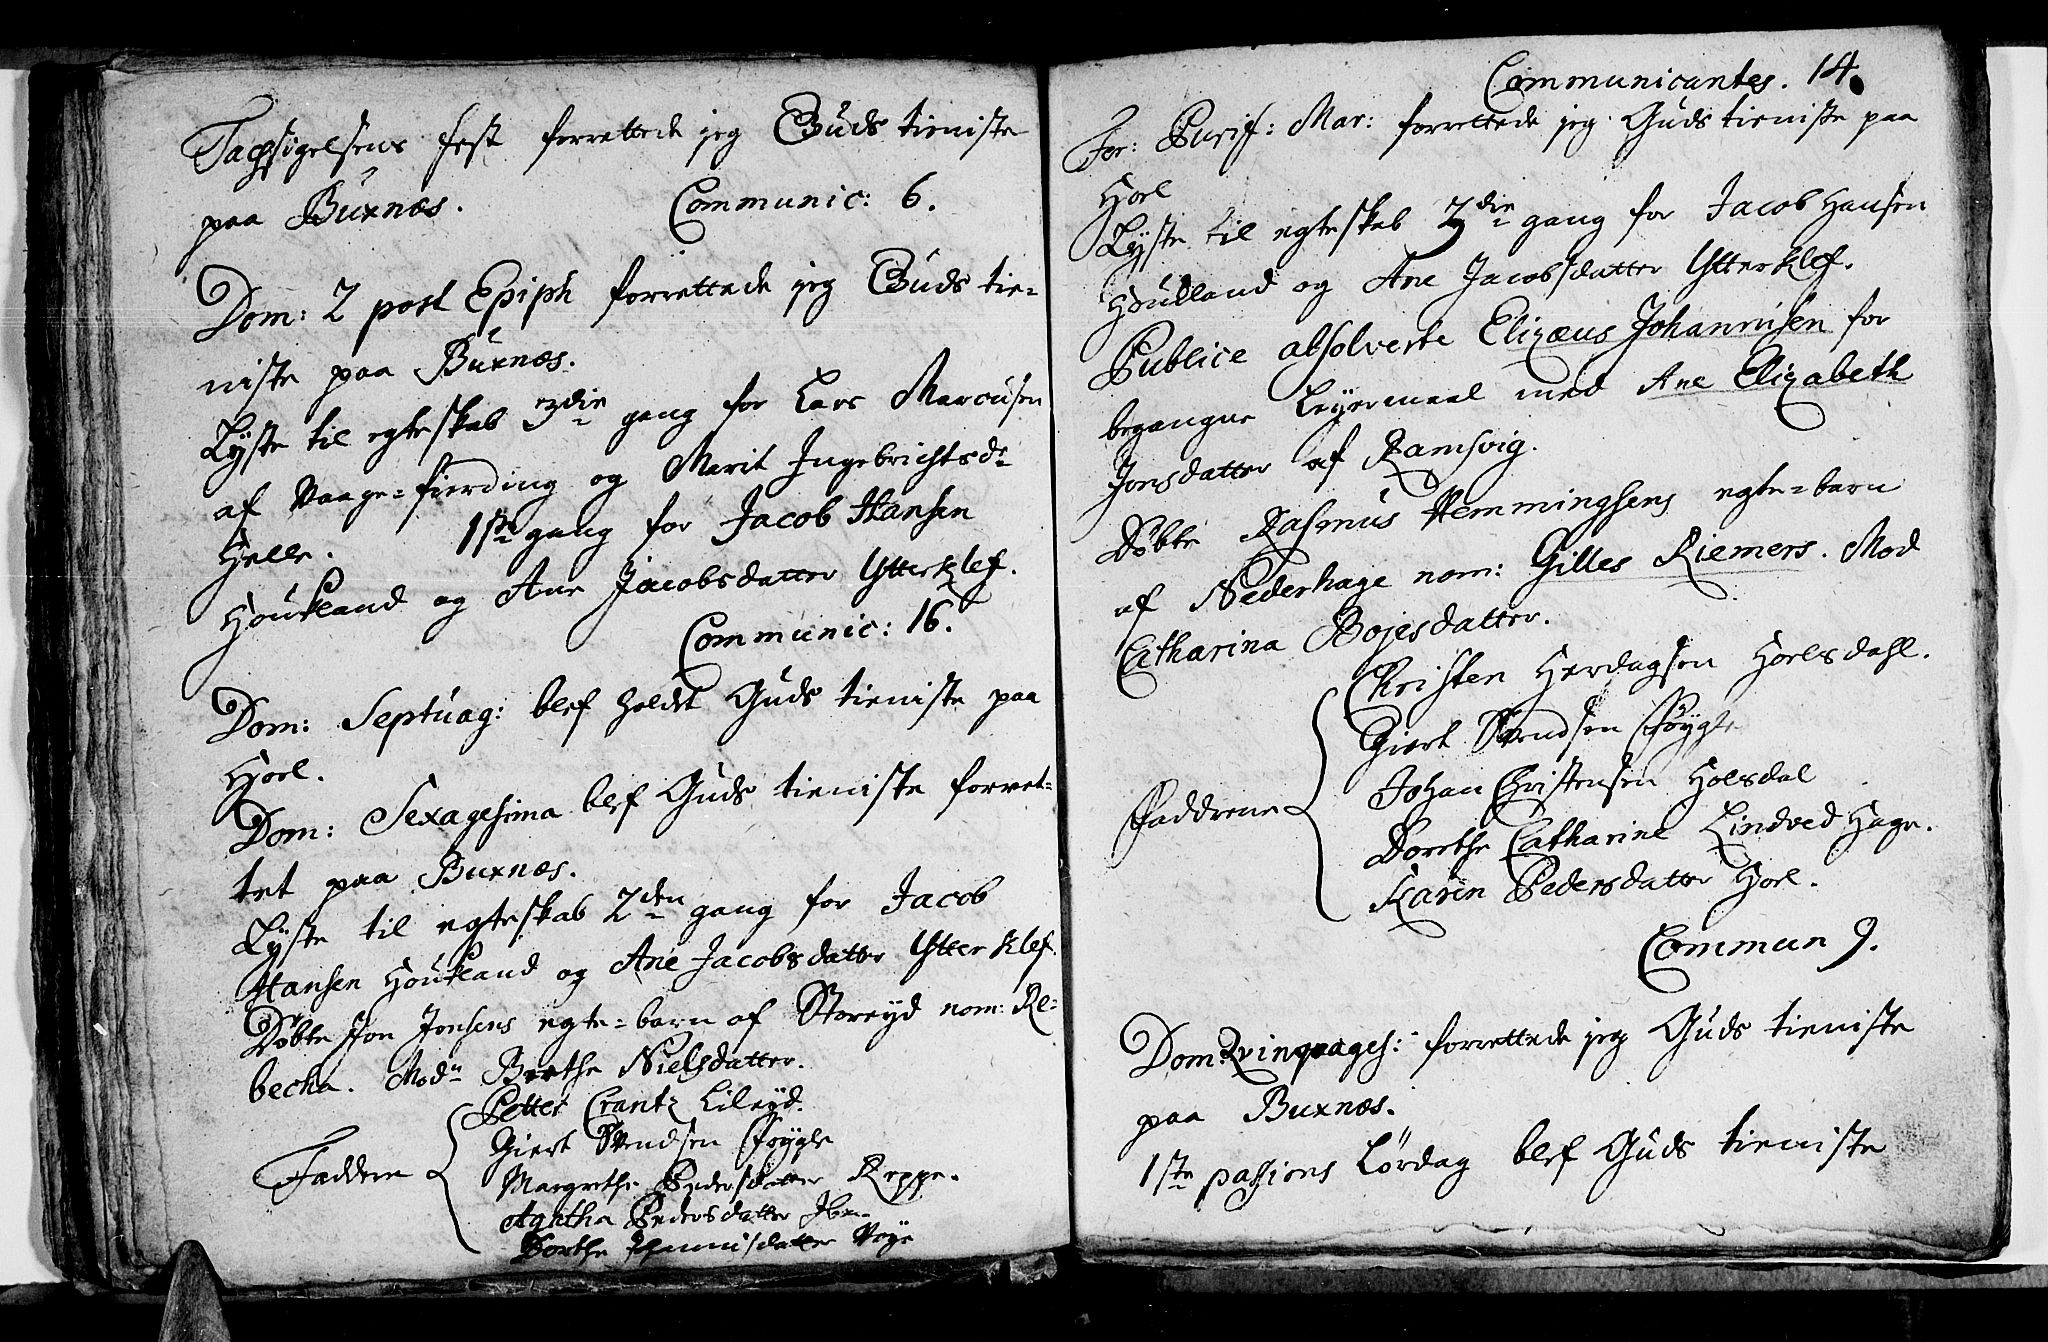 Tachsigelsens fest forrettede jeg Guds tieniste
paa Buxnæs. Communic: 6.
Dom: 2 post Epiph forrettede jeg Guds tie-
niste paa Buxnæs.
Lyste til egteskab 3die gang for Lars Marcusen
af Vaage-fierding og Marit Ingebrichtsdr
Helle. 1ste gang for Jacob Hansen
Houkland og Ane Jacobsdatter Ytterklef.
Communic: 16.
Dom: Septuag: blef holdt Guds tieniste paa
Horl.
Dom: Sexagesima blef Guds tieniste forret-
tet paa Buxnæs.
Lyste til egteskab 2den gang for Jacob
Hansen Houkland og Ane Jacobsdatter Ytterklef.
Døbte Jon Jonsens egte-barn af Storeyd nom: Re-
becka. Modn Berthe Nielsdatter.
Petter Crantz Lileyd.
Giert Svendsen Føygle
Faddere Margrethe Pedersdatter Reppe.
Agatha Pedersdatter Ibn.
Dorthe Johannisdatter Vøge
Communicantes. 14.
Fer: Purif: Mar: forrettede jeg Guds tieniste paa
Horl
Lyste til egteskab 3die gang for Jacob Hansen
Houkland og Ane Jacobsdatter Ytterklef.
Publice absolverte Elizæus Johannisen for
begangne Leyermaal med Ane Elizabeth
Jonsdatter af Ramsvig.
Døbte Rasmus Hemmingsens egte-barn
af Nederhage nom: Gilles Riemers. Mod
Catharina Bojesdatter.
Christen Herdagsen Horlsdahl.
Giert Svendsen Føygle
Faddrene Johan Christensen Holsdal
Dorethe Catharine Lindved Hage.
Karen Pedersdatter Horl.
Commun 9.
Dom: Qvinqvages: forrettede jeg Guds tieniste
paa Buxnæs.
1ste passions Lørdag blef Guds tieniste